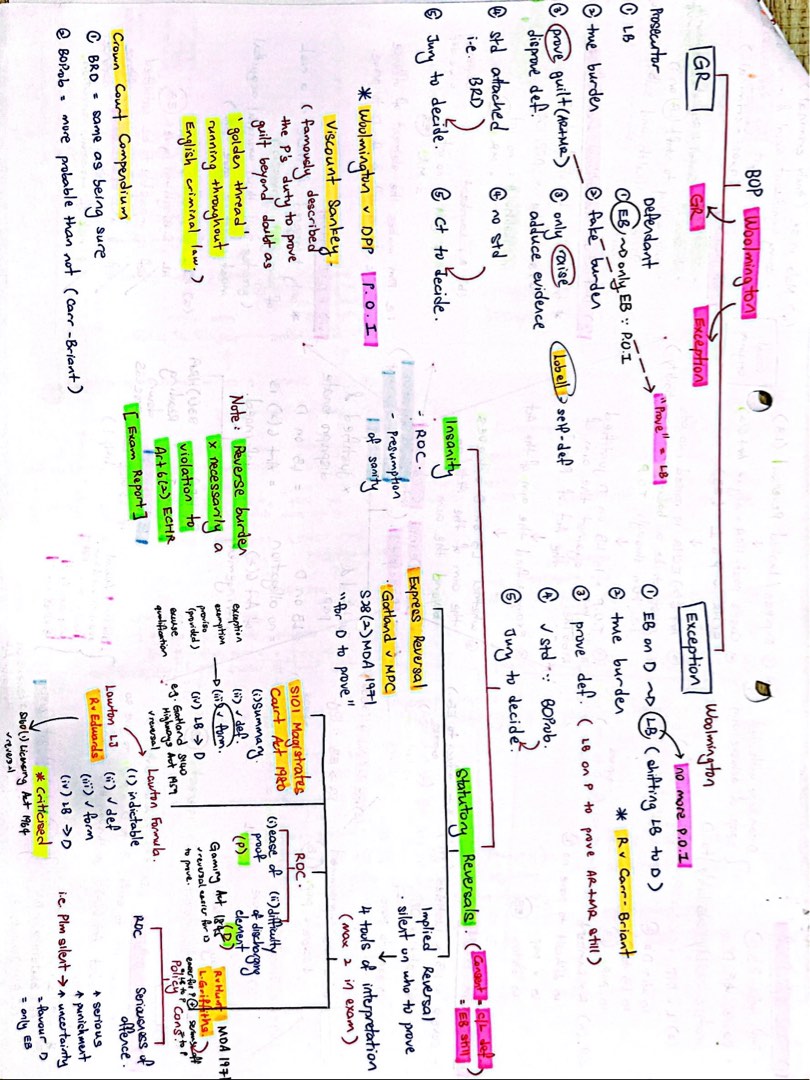 BOP Woolmington
GR
Exception
GR
Prosecutor
① LB
② true burden
③ prove guilt (AR+MR)
disprove def.
④ std attached
i.e. BRD)
⑤ Jury to decide.
Defendant
① EB ~> only EB ∵ P.O.I
"Prove" = LB
② fake burden
③ only raise
adduce evidence
Lobell > self-def
④ no std
⑤ Ct to decide.
* Woolmington v DPP P.O.I
Viscount Sankey:
(famously described
the P's duty to prove
guilt beyond doubt as
'golden thread'
running throughout
English criminal law.)
Crown Court Compendium
① BRD = same as being sure
② BOProb = more probable than not (Carr-Briant)
Exception
Woolmington
no more P.O.I
① EB on D ~> D LB (shifting LB to D)
② true burden * R v Carr-Briant
③ prove def. (LB on P to prove AR+MR still)
④ √ std ∵ BOProb.
⑤ Jury to decide.
Insanity
- ROC.
- Presumption
of sanity
Note: Reverse burden
x necessarily a
violation to
Art 6(2) ECHR
[Exam Report]
Statutory Reversals. (Consent = C/L def)
= EB still
Express Reversal
Gatland v MPC
S28(2) MDA 1971
"for D to prove"
Implied Reversal
· silent on who to prove
4 tools of interpretation
(max 2 in exam)
S101 Magistrates
Court Act 1980
(i) Summary.
(ii) √ def.
(iii) √ form
(iv) LB → D
exception
exemption
proviso
(provided)
excuse
qualification
eg. Gatland S140
Highways Act 1959
√ reversal
Lawton LJ
R v Edwards
Lawton Formula.
(i) indictable
(ii) √ def
(iii) √ form
(iv) LB → D
* Criticised
Licensing Act
1964
√ reversal
ROC.
(i) ease of
proof
(P)
(ii) difficulty
of discharging
element
(D)
Gaming Act 1845
√ reversal easier for D
to prove.
R v Hunt MDA 1971
L. Griffiths.
Policy Cons.
ROC
Seriousness of
offence.
↑ serious
↑ punishment
i.e. Plm silent → ↑ uncertainty
= favour D
= only EB